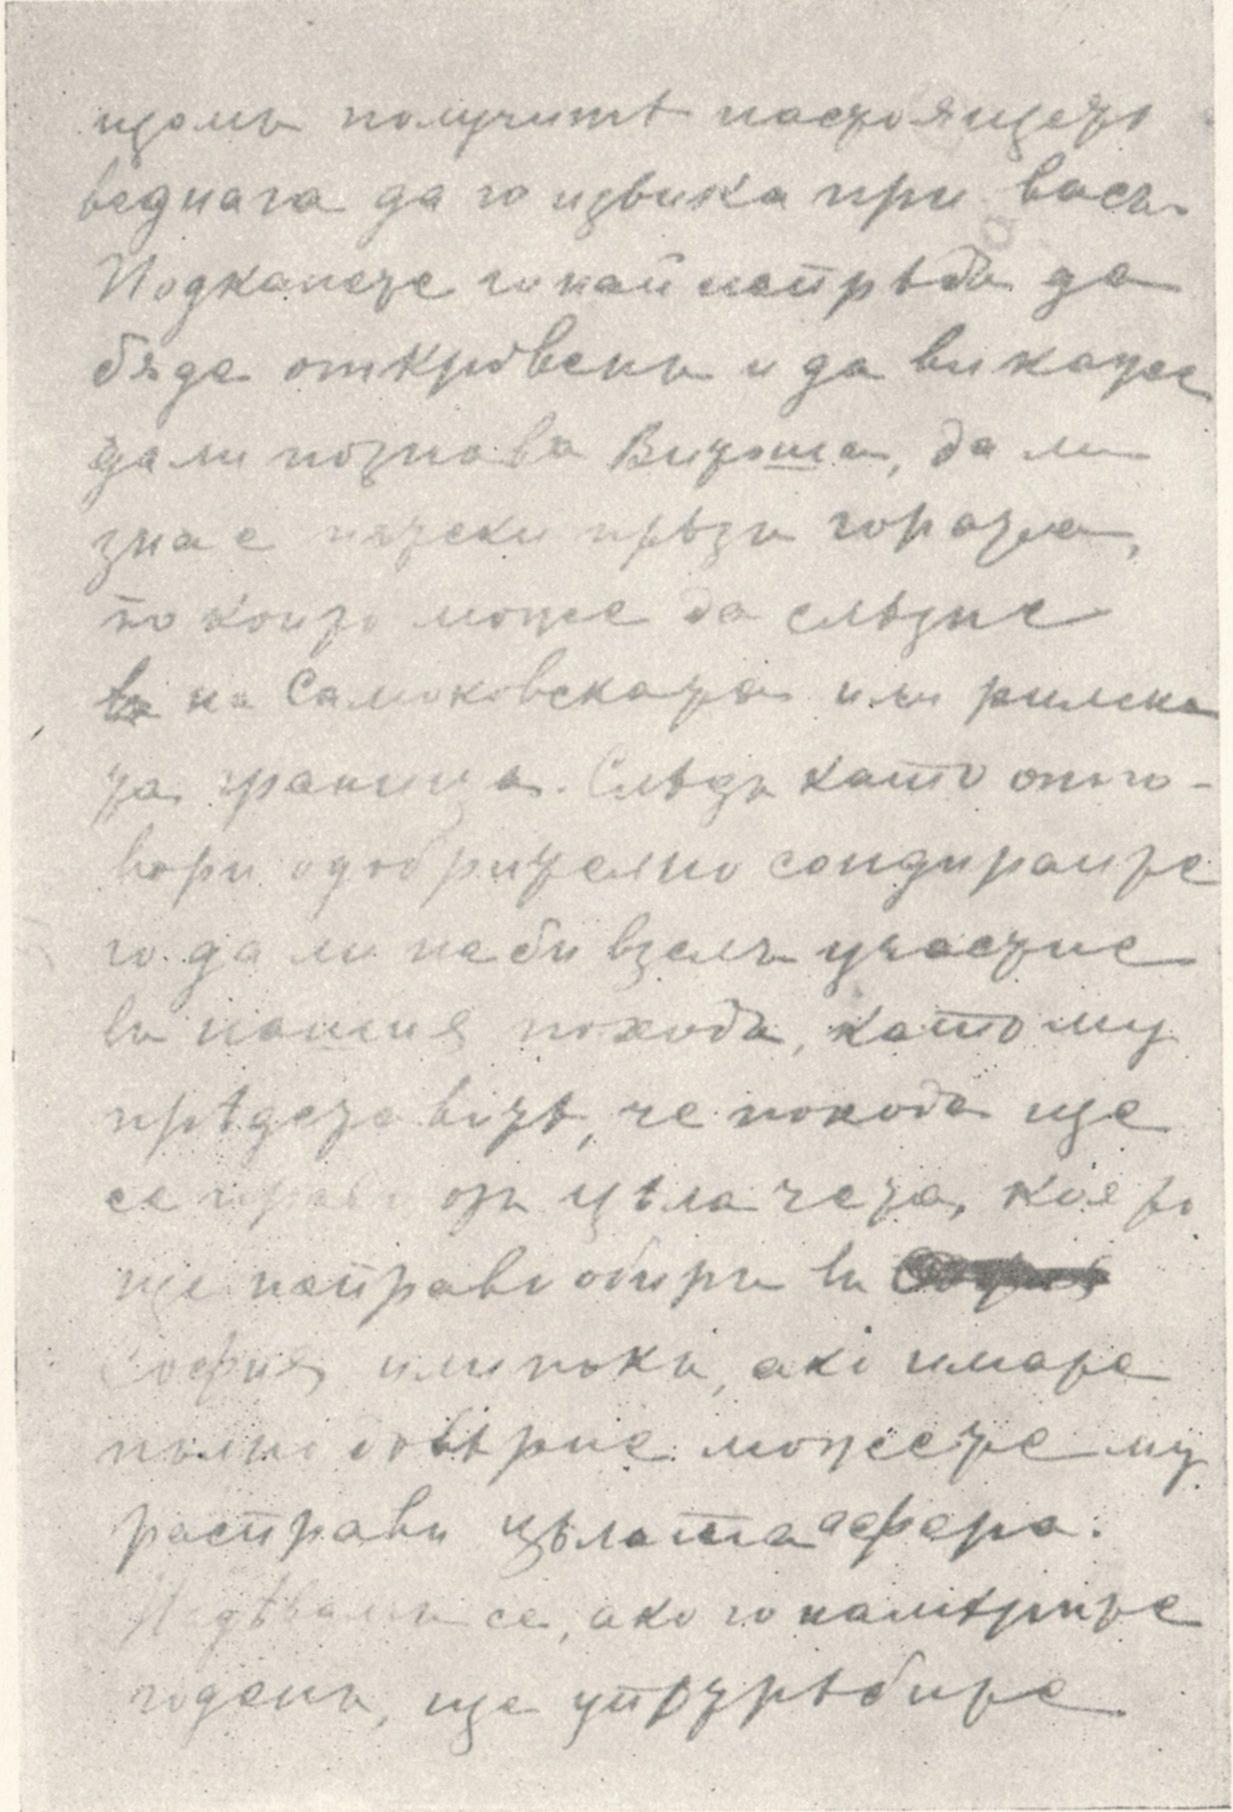 щомъ получитѣ настоящето
веднага да го извика при васъ.
Подканете го най напрѣдъ да
бѫде откровенъ и да ви каже
дали познава Витоша, да ли
знае пѫтеки прѣзъ гората,
по които може да слѣзне
на Самоковската или рилска
та граница. Слѣдъ като отго-
вори одобрително сондирайте
го да ли не би взелъ участие
въ нашия походъ, като му
прѣдставитѣ, че похода ще
се прави отъ цѣла чета, която
ще направи обиръ въ
София или покъ, ако имате
пълно довѣрие можете му
расправи цѣлата афера.
Надѣвамъ се, ако го намѣрите
годенъ, ще употрѣбите